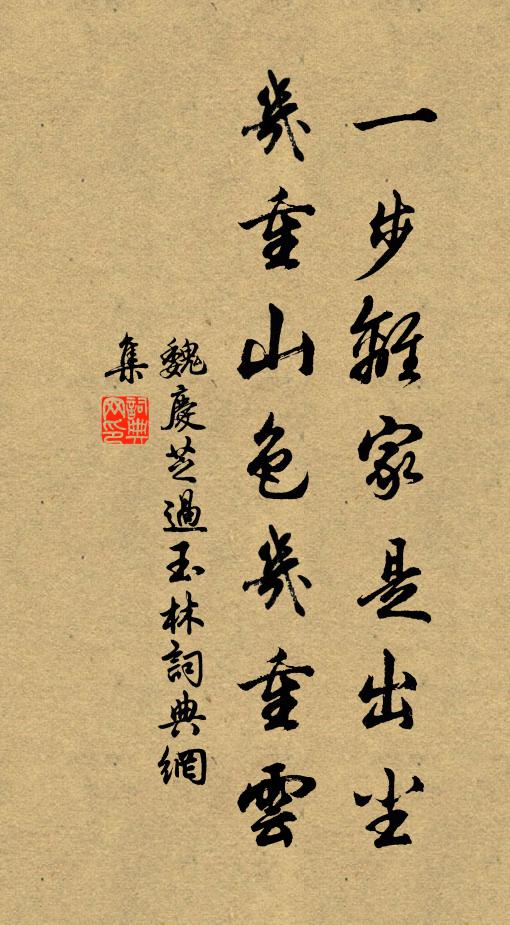 一步離家是出尘
幾重山色幾重雲
魏慶芝過玉林詞典網
集
詞典网印